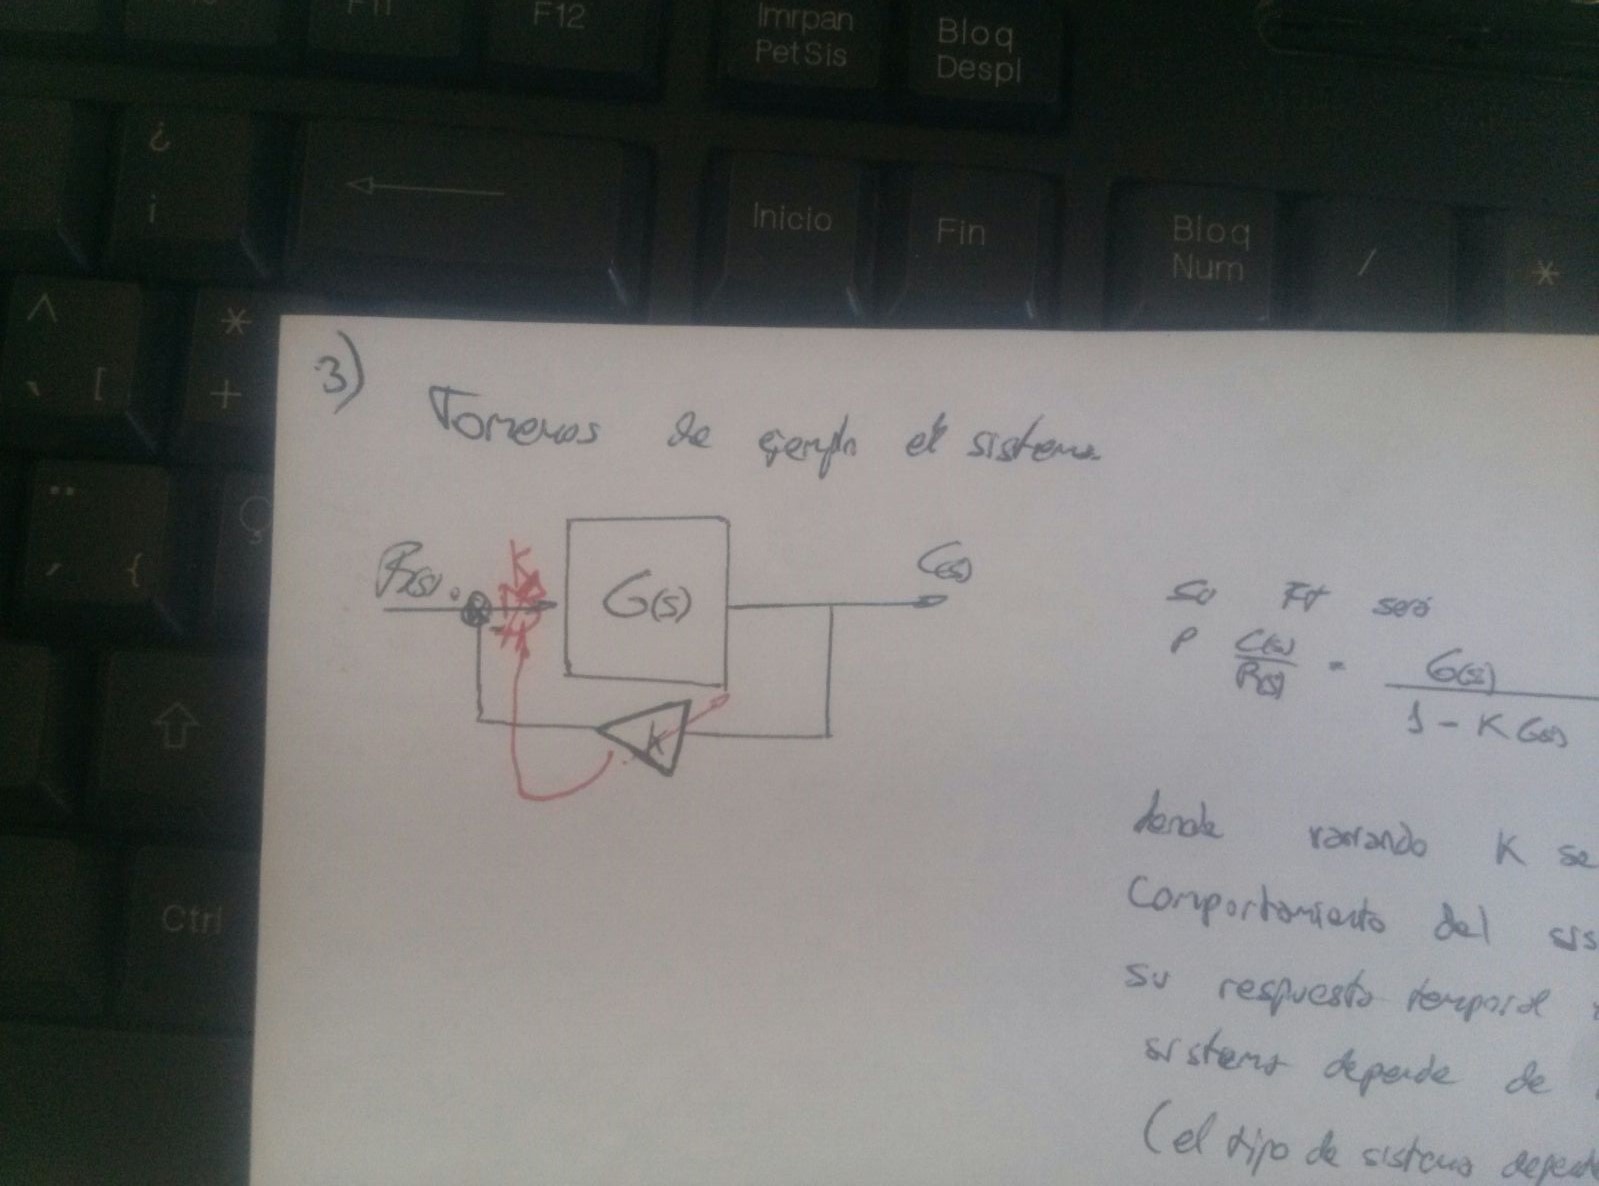 F11
F12
Imrpan
PetSis
Bloq
Despl
¿
¡
Inicio
Fin
Bloq
Num
/
*
^
*
` [
+
¨
Ç
´ {
Ctrl
3)
Tomemos de ejemplo el sistema
R(s)
K
G(s)
C(s)
K
Su Ft será
C(s)
R(s)
=
G(s)
1 - K G(s)
donde variando K se
Comportamiento del sis
su respuesta temporal
sistema depende de
(el tipo de sistema depende